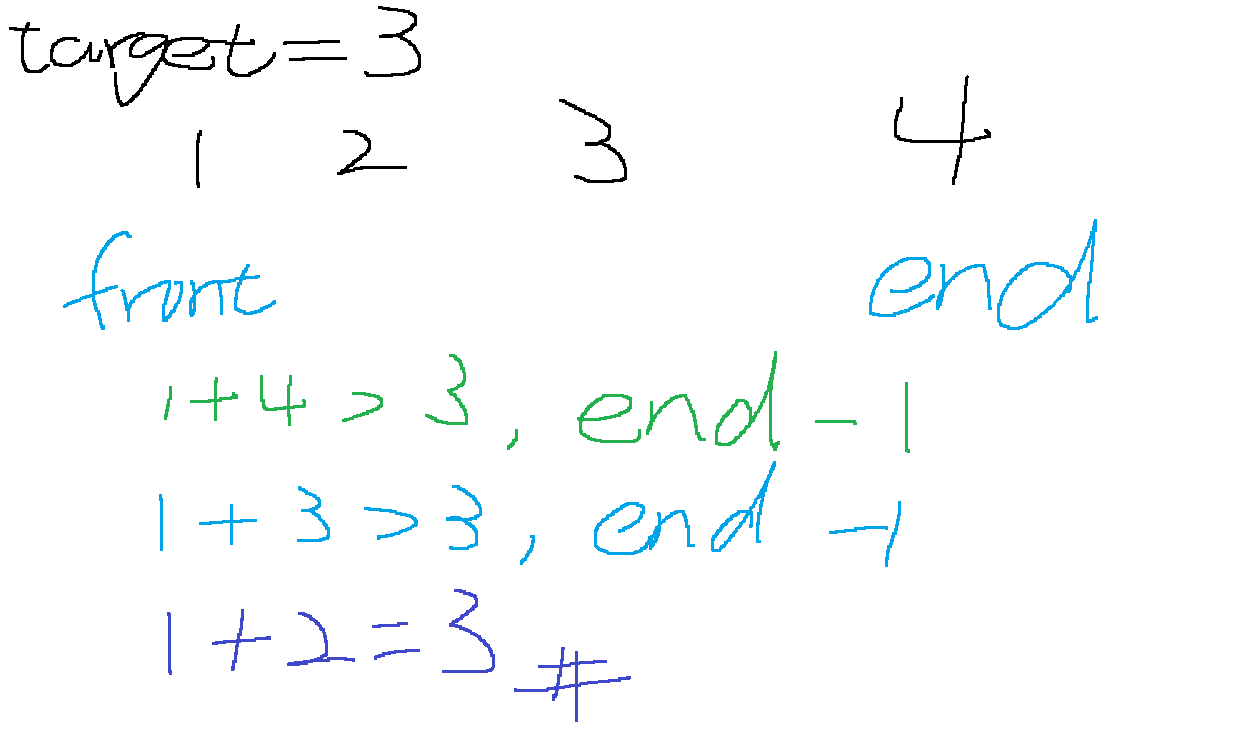 target=3
1 2 3 4
front end
1+4>3, end-1
1+3>3, end-1
1+2=3 #